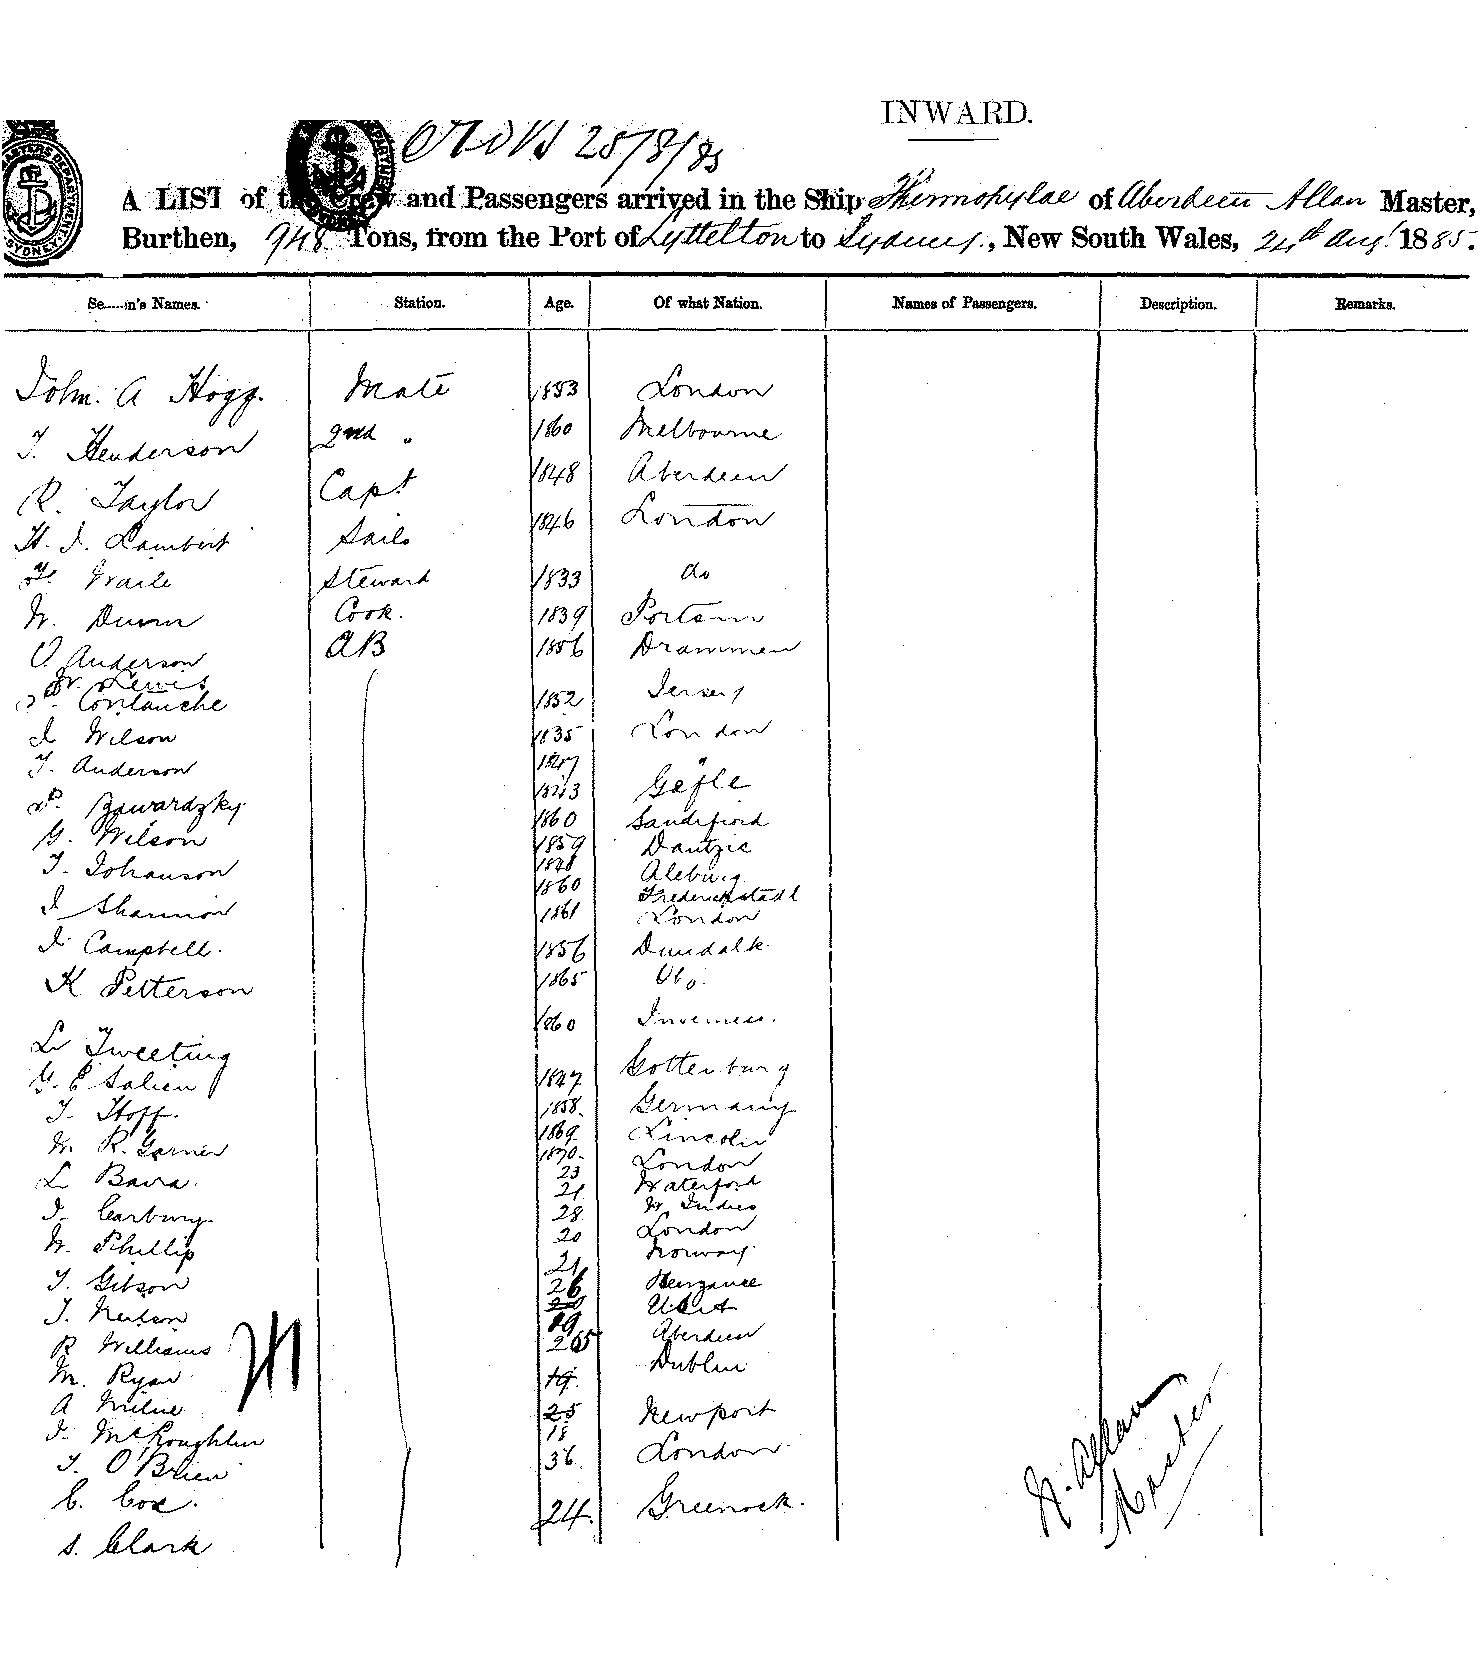 INWARD.
25/8/85
A LIST of the Crew and Passengers arrived in the Ship Thermopylae of Aberdeen Allan Master,
Burthen, 948 Tons, from the Port of Lyttelton to Sydney, New South Wales, 24th Aug. 1885.
Se.....n's Names. Station. Age. Of what Nation. Names of Passengers. Description. Remarks.
John. A Hogg. Mate 1853 London
T. Henderson 2nd " 1860 Melbourne
R. Taylor Capt 1848 Aberdeen
H. J. Lambert Sails 1846 London
Steward 1833 do
W. Dunn Cook. 1839
O Anderson AB 1856 Drammen
W. Lewis
Contanche 1852 Jersey
J Wilson 1835 London
T. Anderson 1847 "
Zawardzky 1843 Gefle
G. Wilson 1860 Sandifiord
T. Johanson 1859 Dantzic
1848
J Shannon 1860 Frederickstadt
1861 London
J. Campbell. 1856 Dundalk.
K Petterson 1865
1860 Inverness.
L Tweeting Gottenburg
G. E Salien 1847
T. Hoff. 1858. Germany
W. R. Garner 1869 Lincoln
1870. London
L Bava. 23 Waterford
21 W. Indies
J. Carbury. 28 London
W. Phillip 20 Norway.
T. Gibson 21
T. Neilson 26 Penzance
R Williams 19 Aberdeen
M. Ryan Dublin
A Milne 19.
J. McLoughlin 25 Newport
T. O'Brien 18
C. Cox. 36. London
S. Clark 24. Greenock.
H. Allan
Master